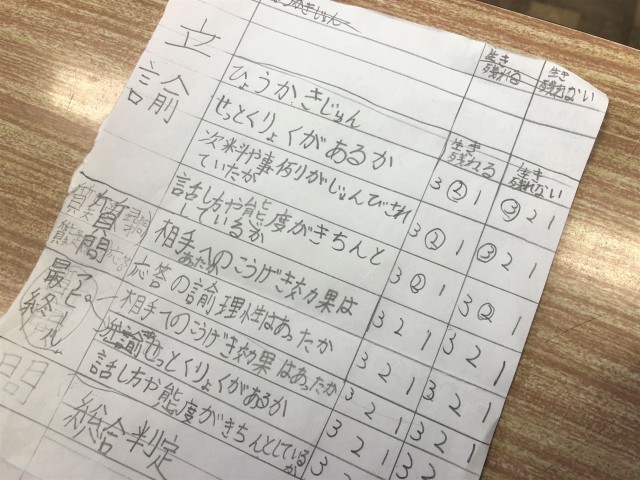 生き
残れる
生き
残れない
立論
ひょうかきじゅん
生き
残れる
生き
残れない
せっとくりょくがあるか
3 2 1
3 2 1
次米斗や事例がじゅんびされ
ていたか
3 2 1
3 2 1
話し方や態度がきちんと
しているか
3 2 1
3 2 1
質問
相手へのこうげき効果は
あったか
3 2 1
3 2 1
応答の論理性はあったか
3 2 1
3 2 1
最終
アピール
相手へのこうげき効果はあったか
3 2 1
3 2 1
せっとくりょくがあるか
3 2 1
3 2 1
話し方や態度がきちんとしている
か
3 2
3 2 1
総合判定